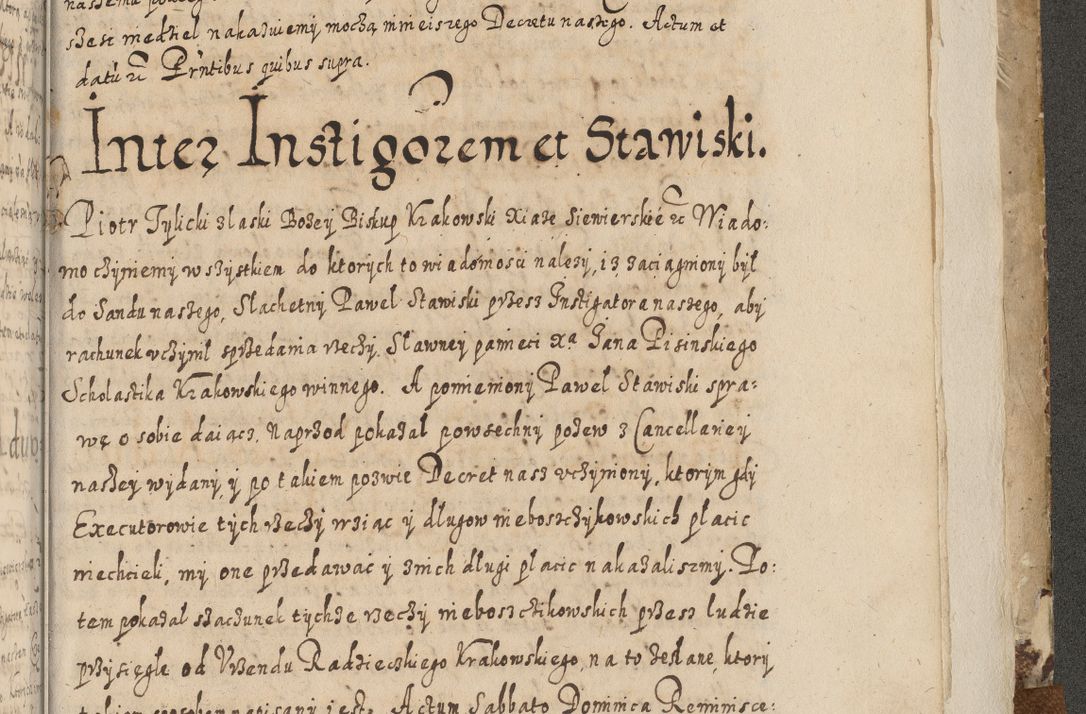 szesc niedziel nakazuiemy mocżą mnieiszego Decretu naszego. Actum et
datu etc Prntibus quibus supra.
Inter Instigorem et Stawiski.
Piotr Tylicki z laski Bozey Biskup Krakowski Xiaze Siewierskie etc Wiado:
mo czyniemy wszystkiem do ktorych to wiadomosci nalezy, iz zaciągniony był
do Sandu naszego, Slachetny Pawel Stawiski przesz Instigatora naszego, aby
rachunek vczynil sprzedania rzeczy. Sławney pamieci Xa Jana Pisinskiego
Scholastika Krakowskiego winnego. A pomieniony Pawel Stawiski spra:
wę o sobie daiącz, Naprzod pokazal powszechny pozew z Cancellariey
naszey wydany, y po takiem pozwie Decret nasz vczyniony, ktorym gdy
Executorowie tych rzeczy wziąc y długow nieboszczykowskich płacic
niechcieli, my one przedawać y znich dlugi płacic nakazaliszmy. Po:
tem pokazal szacunek tychze rzeczy nieboszczikowskich przesz ludzie
przysięgłe od Vrzendu Radzieczkiego Krakowskiego, na to zesłane, ktory
napisany iest. Actum Sabbato Dominica Reminisce: